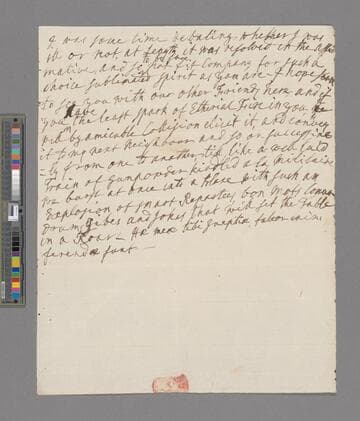 I was some time debating whether I was
Ill or not at length it was resolved in the affir
mative, and so not fit Company for such a
choice sublimated spirit as you are. I hope soon
to see you with our other Friends here and if
you have the least spark of Etherial Fire in you We
by amicable Collision elicit it and convey
it to my next Neighbour and so on successive
ly from one to another till like a well laid
Train of Gunpowder kindled a la militaire
we burst at once into a blaze with such an
Explosion of smart Repartees, bon mots
Gibes and Jokes that will set the Table
in a Roar—
ferendæ sunt —